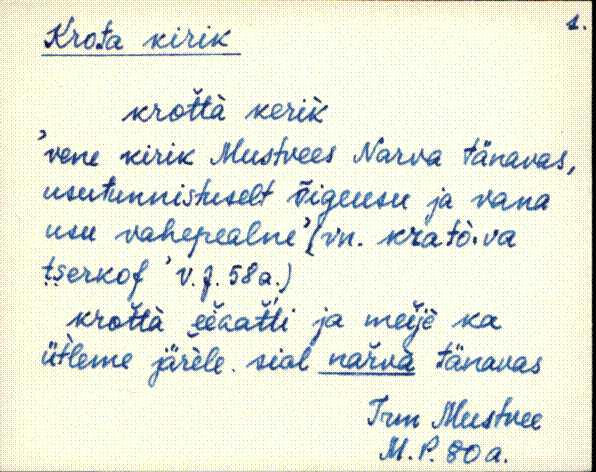 1.
Krota kirik
krot̆tà kerìk
'vene kirik Mustvees Narva tänavas,
usutunnistuselt õigeusu ja vana
usu vahepealne' (vn. kratò·va
tserkof ' v.j. 58a.)
krot̆tà ja meijè ka
üt̀leme järèle. sial nar̆va tänavas
Trm Mustvee
M.P. 80a.